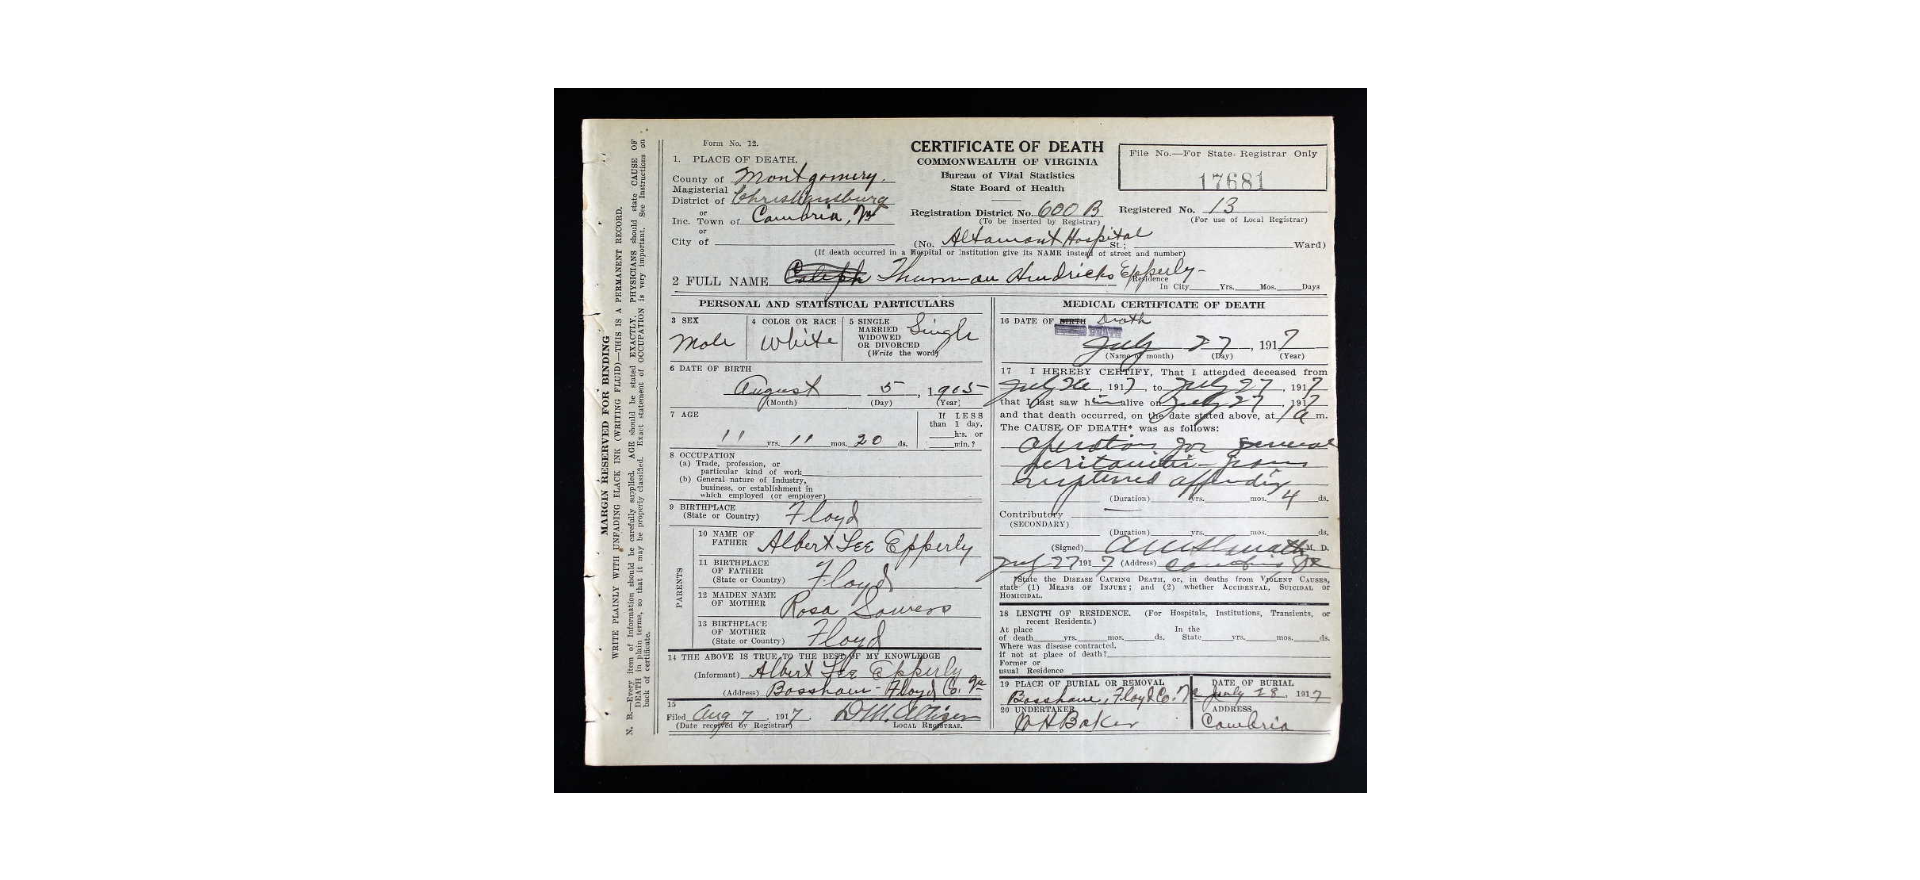 MARGIN RESERVED FOR BINDING
WRITE PLAINLY WITH UNFADING BLACK INK (WRITING FLUID)—THIS IS A PERMANENT RECORD.
N. B.—Every item of Information should be carefully supplied. AGE should be stated EXACTLY. PHYSICIANS should state CAUSE OF
DEATH in plain terms, so that it may be properly classified. Exact statement of OCCUPATION is very important. See Instructions on
back of certificate.
Form No. 12.
CERTIFICATE OF DEATH
COMMONWEALTH OF VIRGINIA
Bureau of Vital Statistics
State Board of Health
File No.—For State Registrar Only
17681
1. PLACE OF DEATH.
County of Montgomery.
Magisterial
District of Christiansburg
or
Inc. Town of Cambria, Va
or
City of
Registration District No. 600 B Registered No. 13
(To be inserted by Registrar) (For use of Local Registrar)
(No. Altamont Hospital St.; Ward)
(If death occurred in a Hospital or institution give its NAME instead of street and number)
2 FULL NAME Thurman Hendricks Epperly
Residence
In City Yrs. Mos. Days
PERSONAL AND STATISTICAL PARTICULARS
3 SEX
Male
4 COLOR OR RACE
White
5 SINGLE
MARRIED
WIDOWED
OR DIVORCED
(Write the word)
Single
6 DATE OF BIRTH
August 5, 1905
(Month) (Day) (Year)
7 AGE
11 yrs. 11 mos. 20 ds.
If LESS
than 1 day,
hrs. or
min.?
8 OCCUPATION
(a) Trade, profession, or
particular kind of work
(b) General nature of Industry,
business, or establishment in
which employed (or employer)
9 BIRTHPLACE
(State or Country) Floyd
PARENTS
10 NAME OF
FATHER Albert Lee Epperly
11 BIRTHPLACE
OF FATHER
(State or Country) Floyd
12 MAIDEN NAME
OF MOTHER Rosa Sowers
13 BIRTHPLACE
OF MOTHER
(State or Country) Floyd
14 THE ABOVE IS TRUE TO THE BEST OF MY KNOWLEDGE
(Informant) Albert Lee Epperly
(Address) Floyd Co. Va
15
Filed Aug 7 1917
(Date received by Registrar) LOCAL REGISTRAR.
MEDICAL CERTIFICATE OF DEATH
16 DATE OF BIRTH Death
July 27, 1917
(Name of month) (Day) (Year)
17 I HEREBY CERTIFY, That I attended deceased from
July 26, 1917, to July 27, 1917
that I last saw him alive on July 27, 1917
and that death occurred, on the date stated above, at 1 a m.
The CAUSE OF DEATH* was as follows:
operation for general
peritonitis from
ruptured appendix
(Duration) yrs. mos. 4 ds.
Contributory
(SECONDARY)
(Duration) yrs. mos. ds.
(Signed) M. D.
July 27 1917 (Address) Cambria Va
*State the DISEASE CAUSING DEATH, or, in deaths from VIOLENT CAUSES,
state (1) MEANS OF INJURY; and (2) whether ACCIDENTAL, SUICIDAL or
HOMICIDAL.
18 LENGTH OF RESIDENCE. (For Hospitals, Institutions, Transients, or
recent Residents.)
At place In the
of death yrs. mos. ds. State yrs. mos. ds.
Where was disease contracted,
if not at place of death?
Former or
usual Residence
19 PLACE OF BURIAL OR REMOVAL
Floyd Co. Va
DATE OF BURIAL
July 28 1917
20 UNDERTAKER
Baker
ADDRESS
Cambria